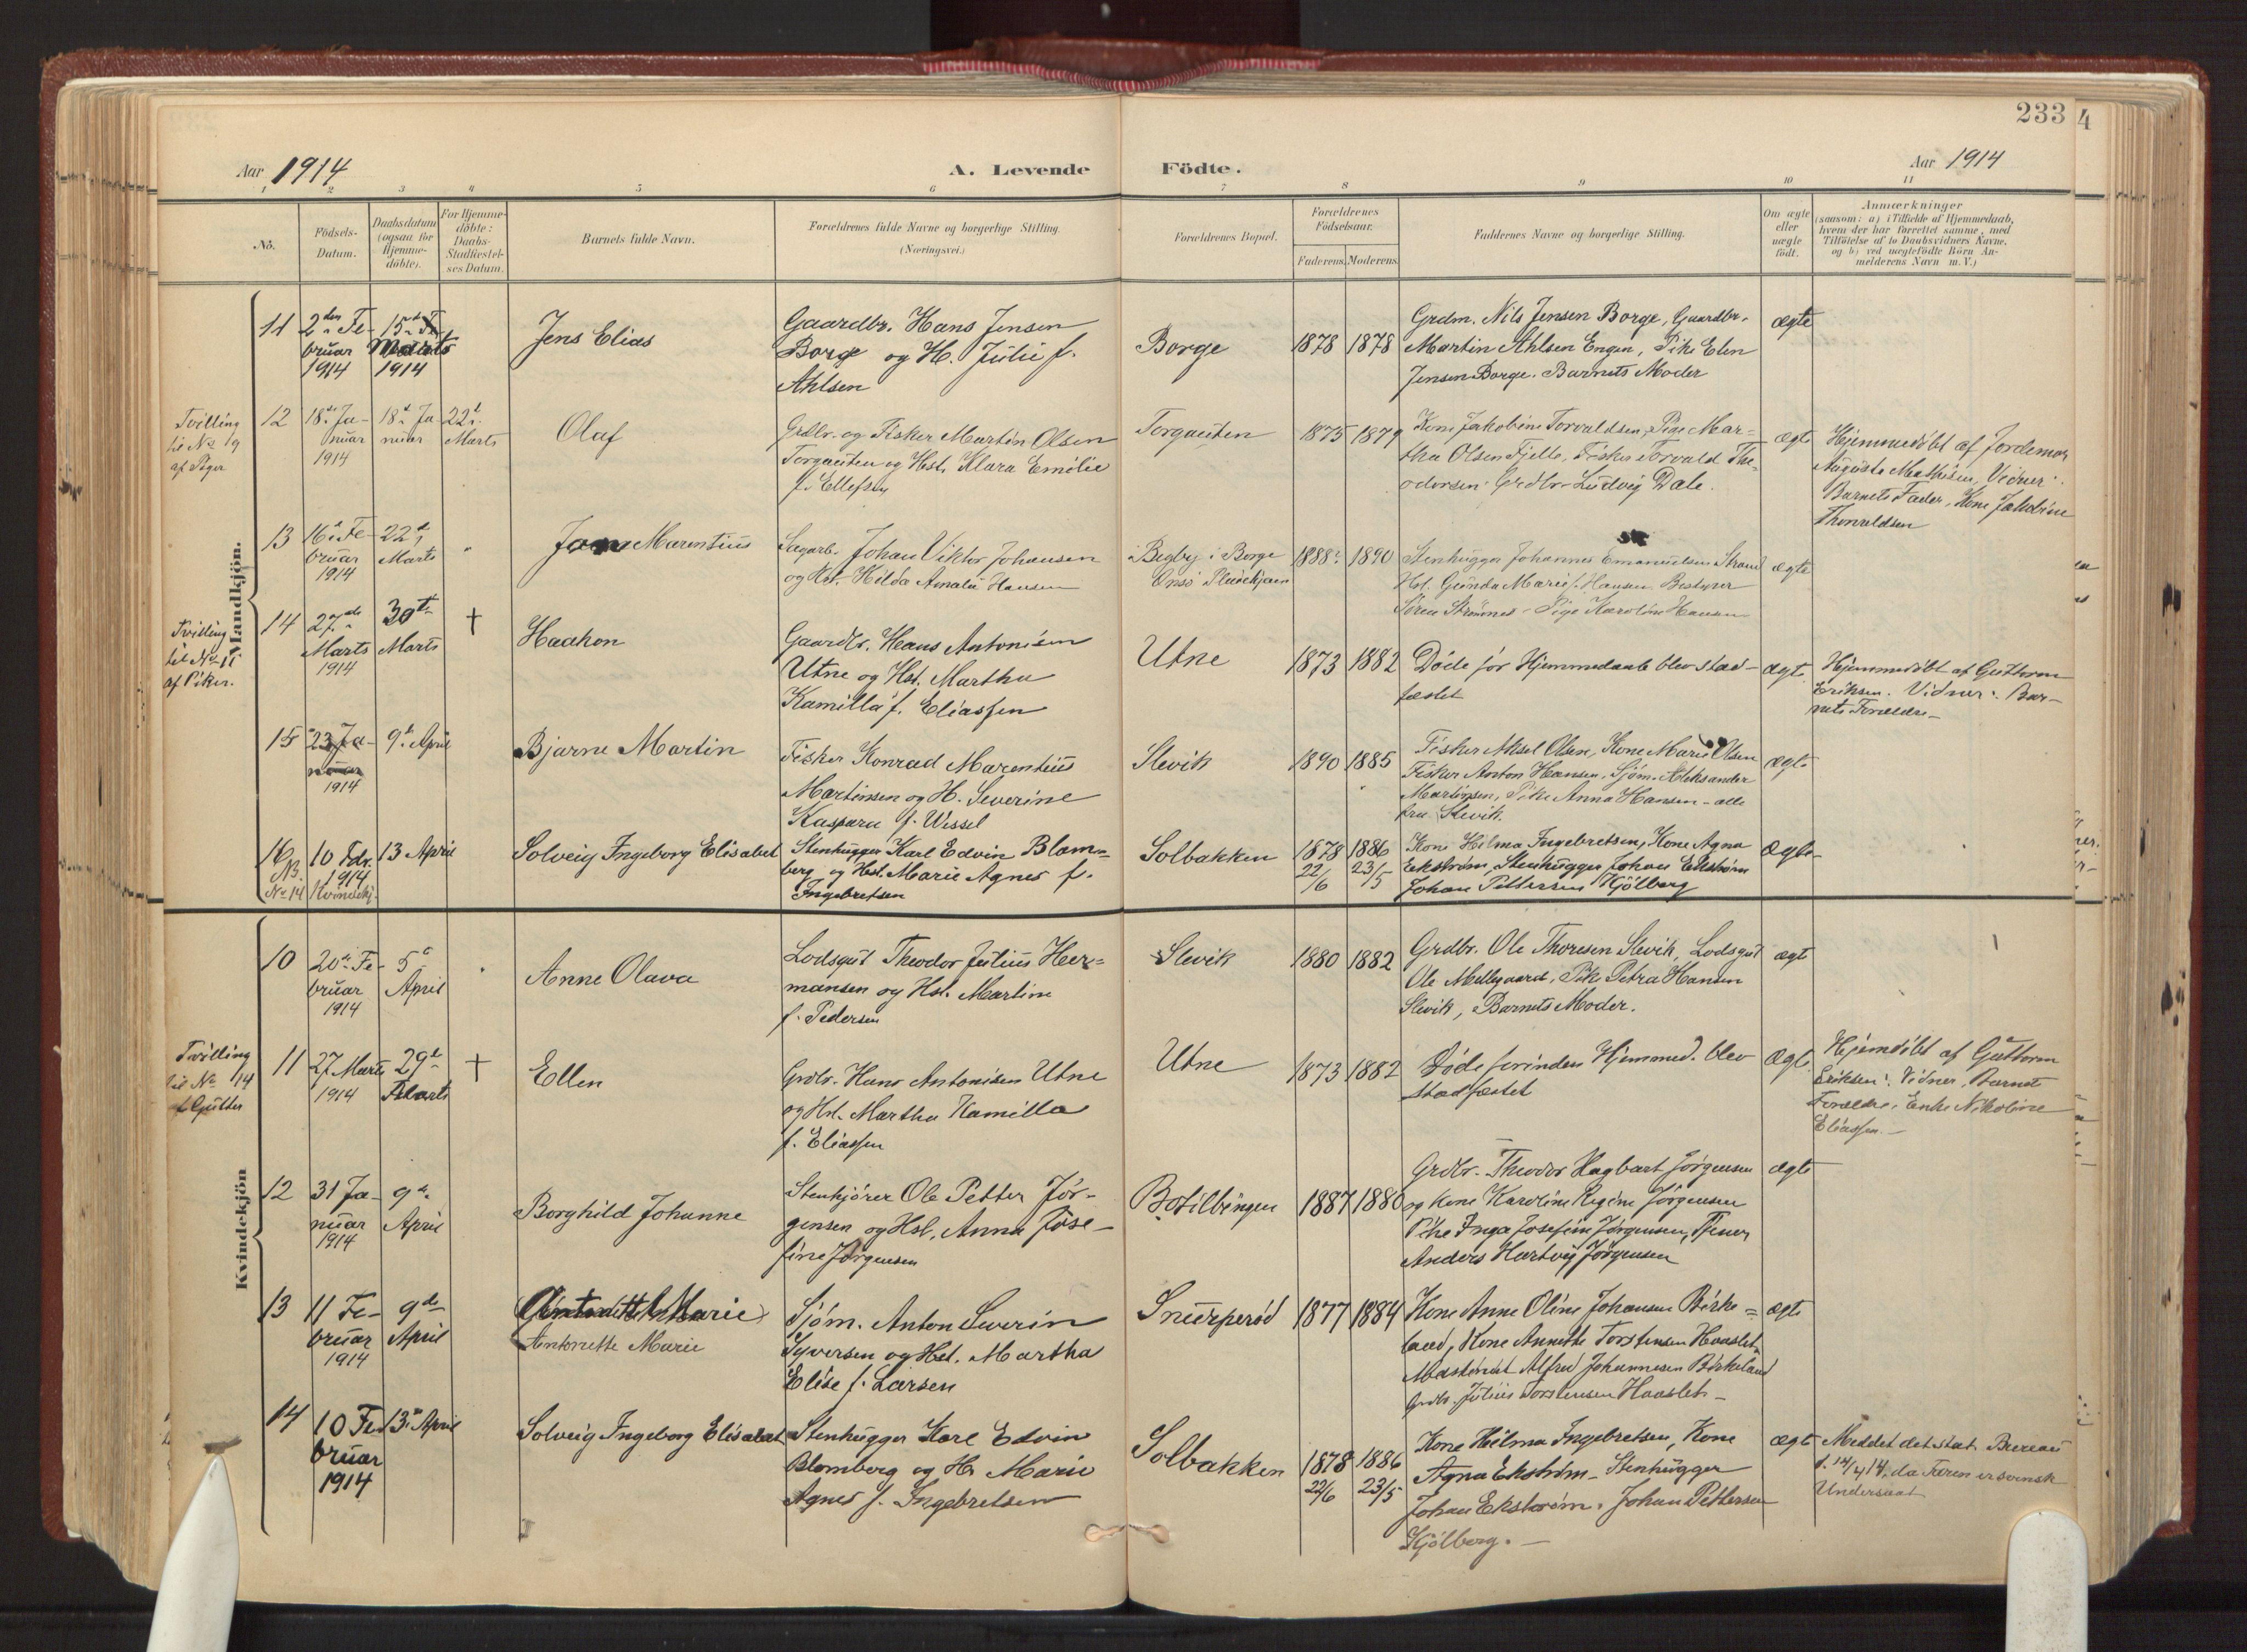 233
4
Aar 1914
A. Levende
Födte.
Aar 1914
1 2 3 4 5 6 7 8 9 10 11
No.
Födsels-
Datum.
Daabsdatum
(ogsaa for
Hjemme-
döbte).
For Hjemme-
döbte:
Daabs-
Stadfæstel-
ses Datum.
Barnets fulde Navn.
Forældrenes fulde Navne og borgerlige Stilling.
(Næringsvei.)
Forældrenes Bopæl.
Forældrenes
Födselsaar.
Faderens. Moderens.
Faddernes Navne og borgerlige Stilling.
Om ægte
eller
uægte
födt.
Anmærkninger
(saasom: a) i Tilfælde af Hjemmedaab,
hvem der har forrettet samme, med
Tilföielse af to Daabsvidners Navne.
og b) ved uægtefödte Börn An-
melderens Navn m. V.)
Mandkjön.
11
2den Fe-
bruar
1914
15de
Marts
1914
Jens Elias
Gaardbr. Hans Jensen
Borge og H. Julie f.
Ahlsen
Borge
1878 1878
Grdm. Nils Jensen Borge, Gaardbr.
Martin Ahlsen Engen, Pike Elen
Jensen Borge. Barnets Moder
ægte
Tvilling
til No 19
af Piger
12
18de Ja-
nuar
1914
18de Ja-
nuar
22de
Marts
Olaf
Grdbr. og Fisker Martin Olsen
Torgauten og Hst. Klara Emilie
f. Ellefsen
Torgauten
1875 1879
Kone Jakobine Torvaldsen, Pige Mar-
tha Olsen Fjelle, Fisker Torvald The-
odorsen. Grdbr. Ludvig Dale.
ægte
Hjemmedöbt af Jordemor
Auguste Mathisen, Vidner:
Barnets Fader, Kone Jakobine
Thorvaldsen
13
16de Fe-
bruar
1914
22de
Marts
Marentius
Sagarb. Johan Viktor Johansen
og Hst. Hilda Amalie Hansen
i Begby i Borge
Onsö
1888 1890
Stenhugger Johannes Emanuelsen Strand
Hst. Gunda Marie f. Hansen, Bestyrer
Sören Strömnes - Pige Karoline Hansen
ægte
Tvilling
til No 11
af Piker.
14
27de
Marts
1914
30te
Marts
†
Haakon
Gaardbr. Hans Antonisen
Utne og Hst. Martha
Kamilla f. Eliassen
Utne
1873 1882
Döde för Hjemmedaab blev stad-
fæstet
ægte
Hjemmedöbt af Guthorm
Eriksen. Vidner: Bar-
nets Forældre -
15
23 Ja-
nuar
1914
9de April
Bjarne Martin
Fisker Konrad Marentius
Martinsen og H. Severine
Kaspara f. Wessel
Slevik
1890 1885
Fisker Aksel Olsen, Kone Marie Olsen
Fisker Anton Hansen, Sjöm. Aleksander
Martinsen, Pike Anna Hansen - alle
fra Slevik.
ægte
16
NB.
No 14
10 Fdr.
1914
Kvindekj.
13 April
Solveig Ingeborg Elisabet
Stenhugger Karl Edvin Blom-
berg og Hst. Marie Agnes f.
Ingebretsen
Solbakken
1878 1886
22/6 23/5
Kone Hilma Ingebretsen, Kone Agna
Eckström, Stenhugger Johan Ekström
Johan Pettersen Kjölberg
ægte
Kvindekjön
10
20de Fe-
bruar
1914
5te
April
Anne Olava
Lodsgut Theodor Julius Her-
mansen og Hst. Martine
f. Pedersen
Slevik
1880 1882
Grdbr. Ole Thoresen Slevik, Lodsgut
Ole Mellegaard, Pike Petra Hansen
Slevik, Barnets Moder.
ægte
Tvilling
til No 14
af Gutter
11
27 Marts
1914
29de
Marts
†
Ellen
Grdbr. Hans Antonisen Utne
og Hst. Martha Kamilla
f. Eliassen
Utne
1873 1882
Döde forinden Hjemmed. blev
stadfæstet
Ægte
Hjemdöbt af Guthorm
Eriksen. Vidner, Barnets
Forældre, Enke Nikoline
Eliassen. -
12
31 Ja-
nuar
1914
9de
April
Borghild Johanne
Stenkjörer Ole Petter Jör-
gensen og Hst. Anna Jose-
fine Jörgensen
Botilbingen
1887 1880
Grdbr. Theodor Hagbart Jörgensen
og Kone Karoline Regine Jörgensen
Pike Inga Josefine Jörgensen, Tjener
Anders Hartvig Jörgensen
ægte
13
11 Fe-
bruar
1914
9de
April
Antonette Marie
Sjöm. Anton Severin
Syversen og Hst. Martha
Elise f. Larsen
Snurperöd
1877 1884
Kone Anne Oline Johansen Birke-
land, Kone Annette Torstensen Haaslet.
Maskinist Alfred Johannesen Birkeland
Grdbr. Julius Torstensen Haaslet -
ægte
14
10 Fe-
bruar
1914
13de April
Solveig Ingeborg Elisabet
Stenhugger Karl Edvin
Blomberg og H. Marie
Agnes f. Ingebretsen
Solbakken
1878 1886
22/6 23/5
Kone Hilma Ingebretsen, Kone
Agna Ekström - Stenhugger
Johan Ekström. Johan Pettersen
Kjölberg. -
ægte
Meddet det stat. Bureau
d. 14/4 14, da Faren er svensk
Undersaat